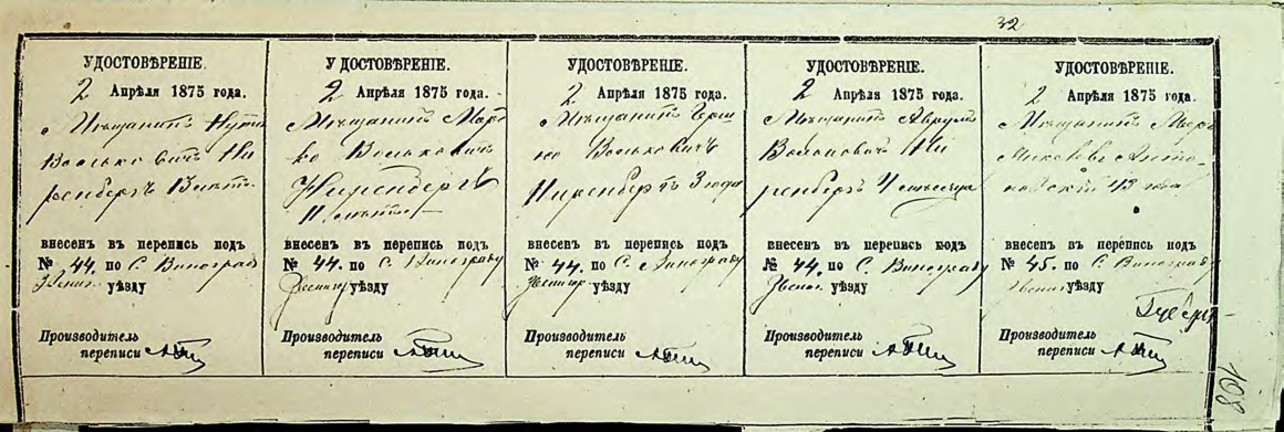 32
УДОСТОВѢРЕНІЕ.
2 Апрѣля 1875 года.
Мѣщанинъ
Волькович Ни
ренбергъ
внесенъ въ перепись подъ
№ 44. по С. Виноград
Звениг. уѣзду
Производитель
переписи
УДОСТОВѢРЕНІЕ.
2 Апрѣля 1875 года.
Мѣщанинъ Мор
ко Волькович
Ниренбергъ
11 лѣтъ
внесенъ въ перепись подъ
№ 44. по С. Винограду
Звенигор уѣзду
Производитель
переписи
УДОСТОВѢРЕНІЕ.
2 Апрѣля 1875 года.
Мѣщанинъ Герш
ко Волькович
Ниренбергъ 3 года
внесенъ въ перепись подъ
№ 44. по С. Винограду
Звенигор уѣзду
Производитель
переписи
УДОСТОВѢРЕНІЕ.
2 Апрѣля 1875 года.
Мѣщанинъ Аврумъ
Ни
ренбергъ 4 месяца
внесенъ въ перепись подъ
№ 44. по С. Винограду
Звениг. уѣзду
Производитель
переписи
УДОСТОВѢРЕНІЕ.
2 Апрѣля 1875 года.
Мѣщанинъ
43 года
внесенъ въ перепись подъ
№ 45. по С. Винограду
Звениг уѣзду
Производитель
переписи
108